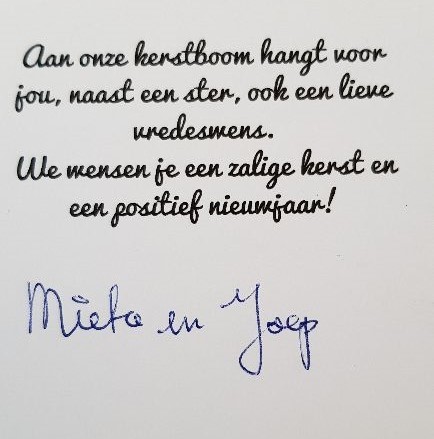 Aan onze kerstboom hangt voor
jou, naast een ster, ook een lieve
vredeswens.
We wensen je een zalige kerst en
een positief nieuwjaar!
Mieke en Joep